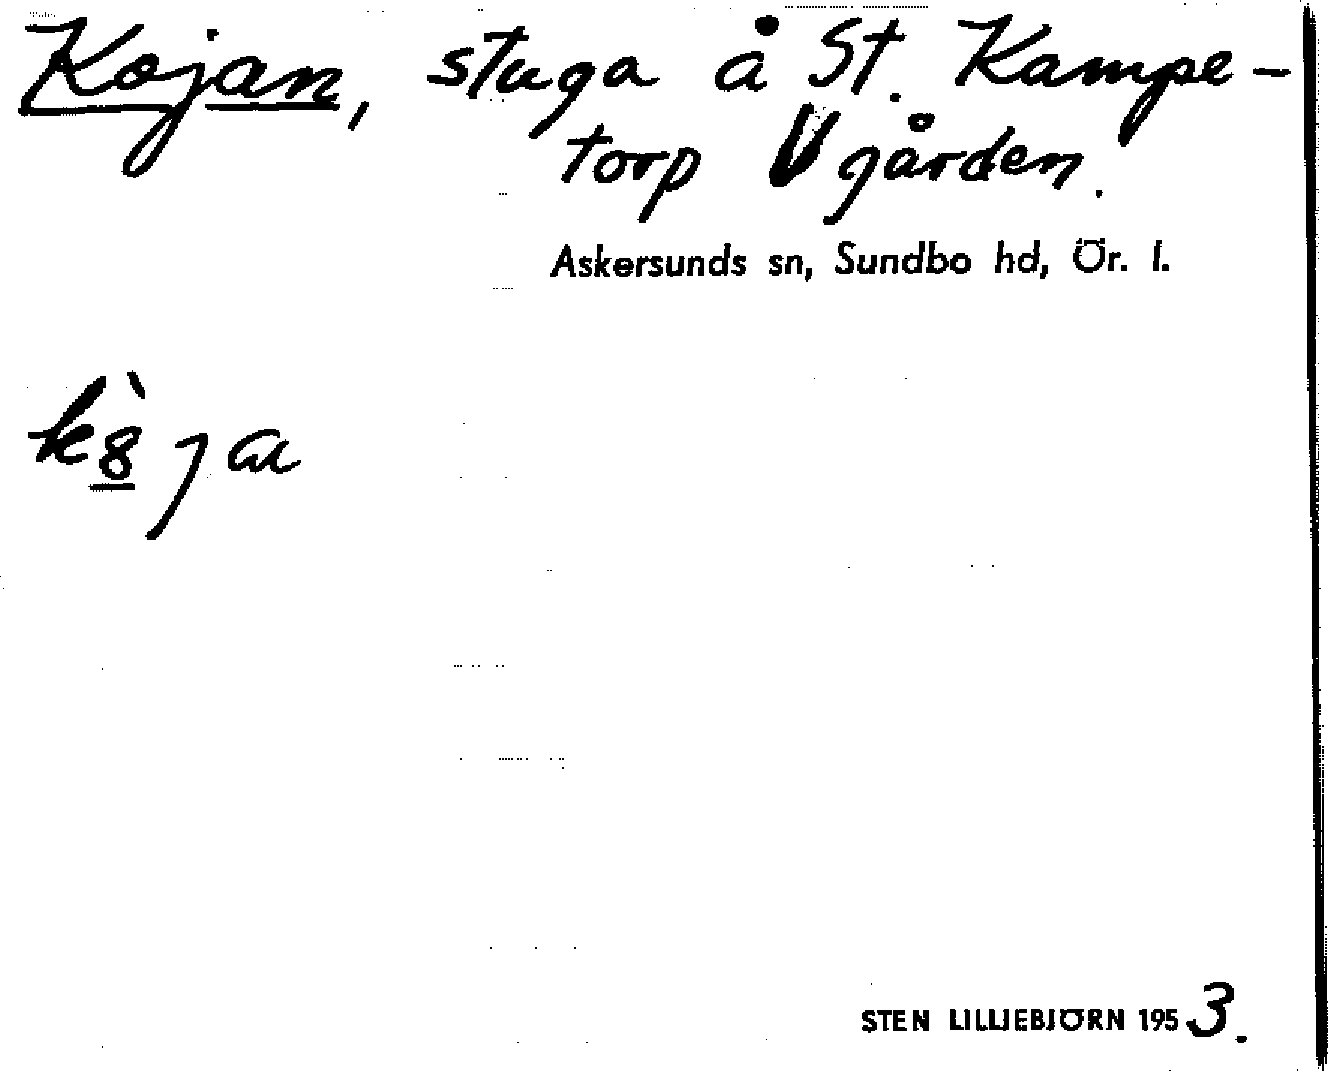 Kojan, stuga å St. Kampe-
torp V gården.
Askersunds sn, Sundbo hd, Ör. l.
k8̱̀ja
STEN LILLIEBJÖRN 1953.